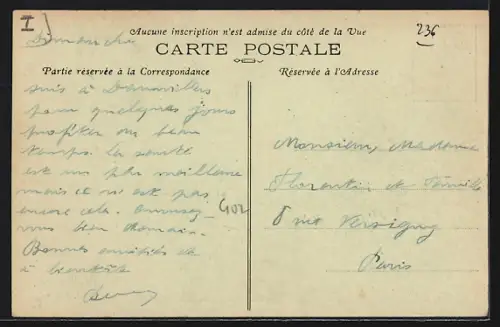 I
236
Aucune inscription n'est admise du côté de la Vue
Dimanche
CARTE POSTALE
Partie réservée à la Correspondance
Réservée à l'Adresse
suis à
pour quelques jours
profiter du beau
temps la santé
est un peu meilleure
mais ce n'est pas
encore cela.
bien
Bonnes amitiés et
à bientôt
Monsieur, Madame
Florentin et famille
8 rue Versigny
Paris